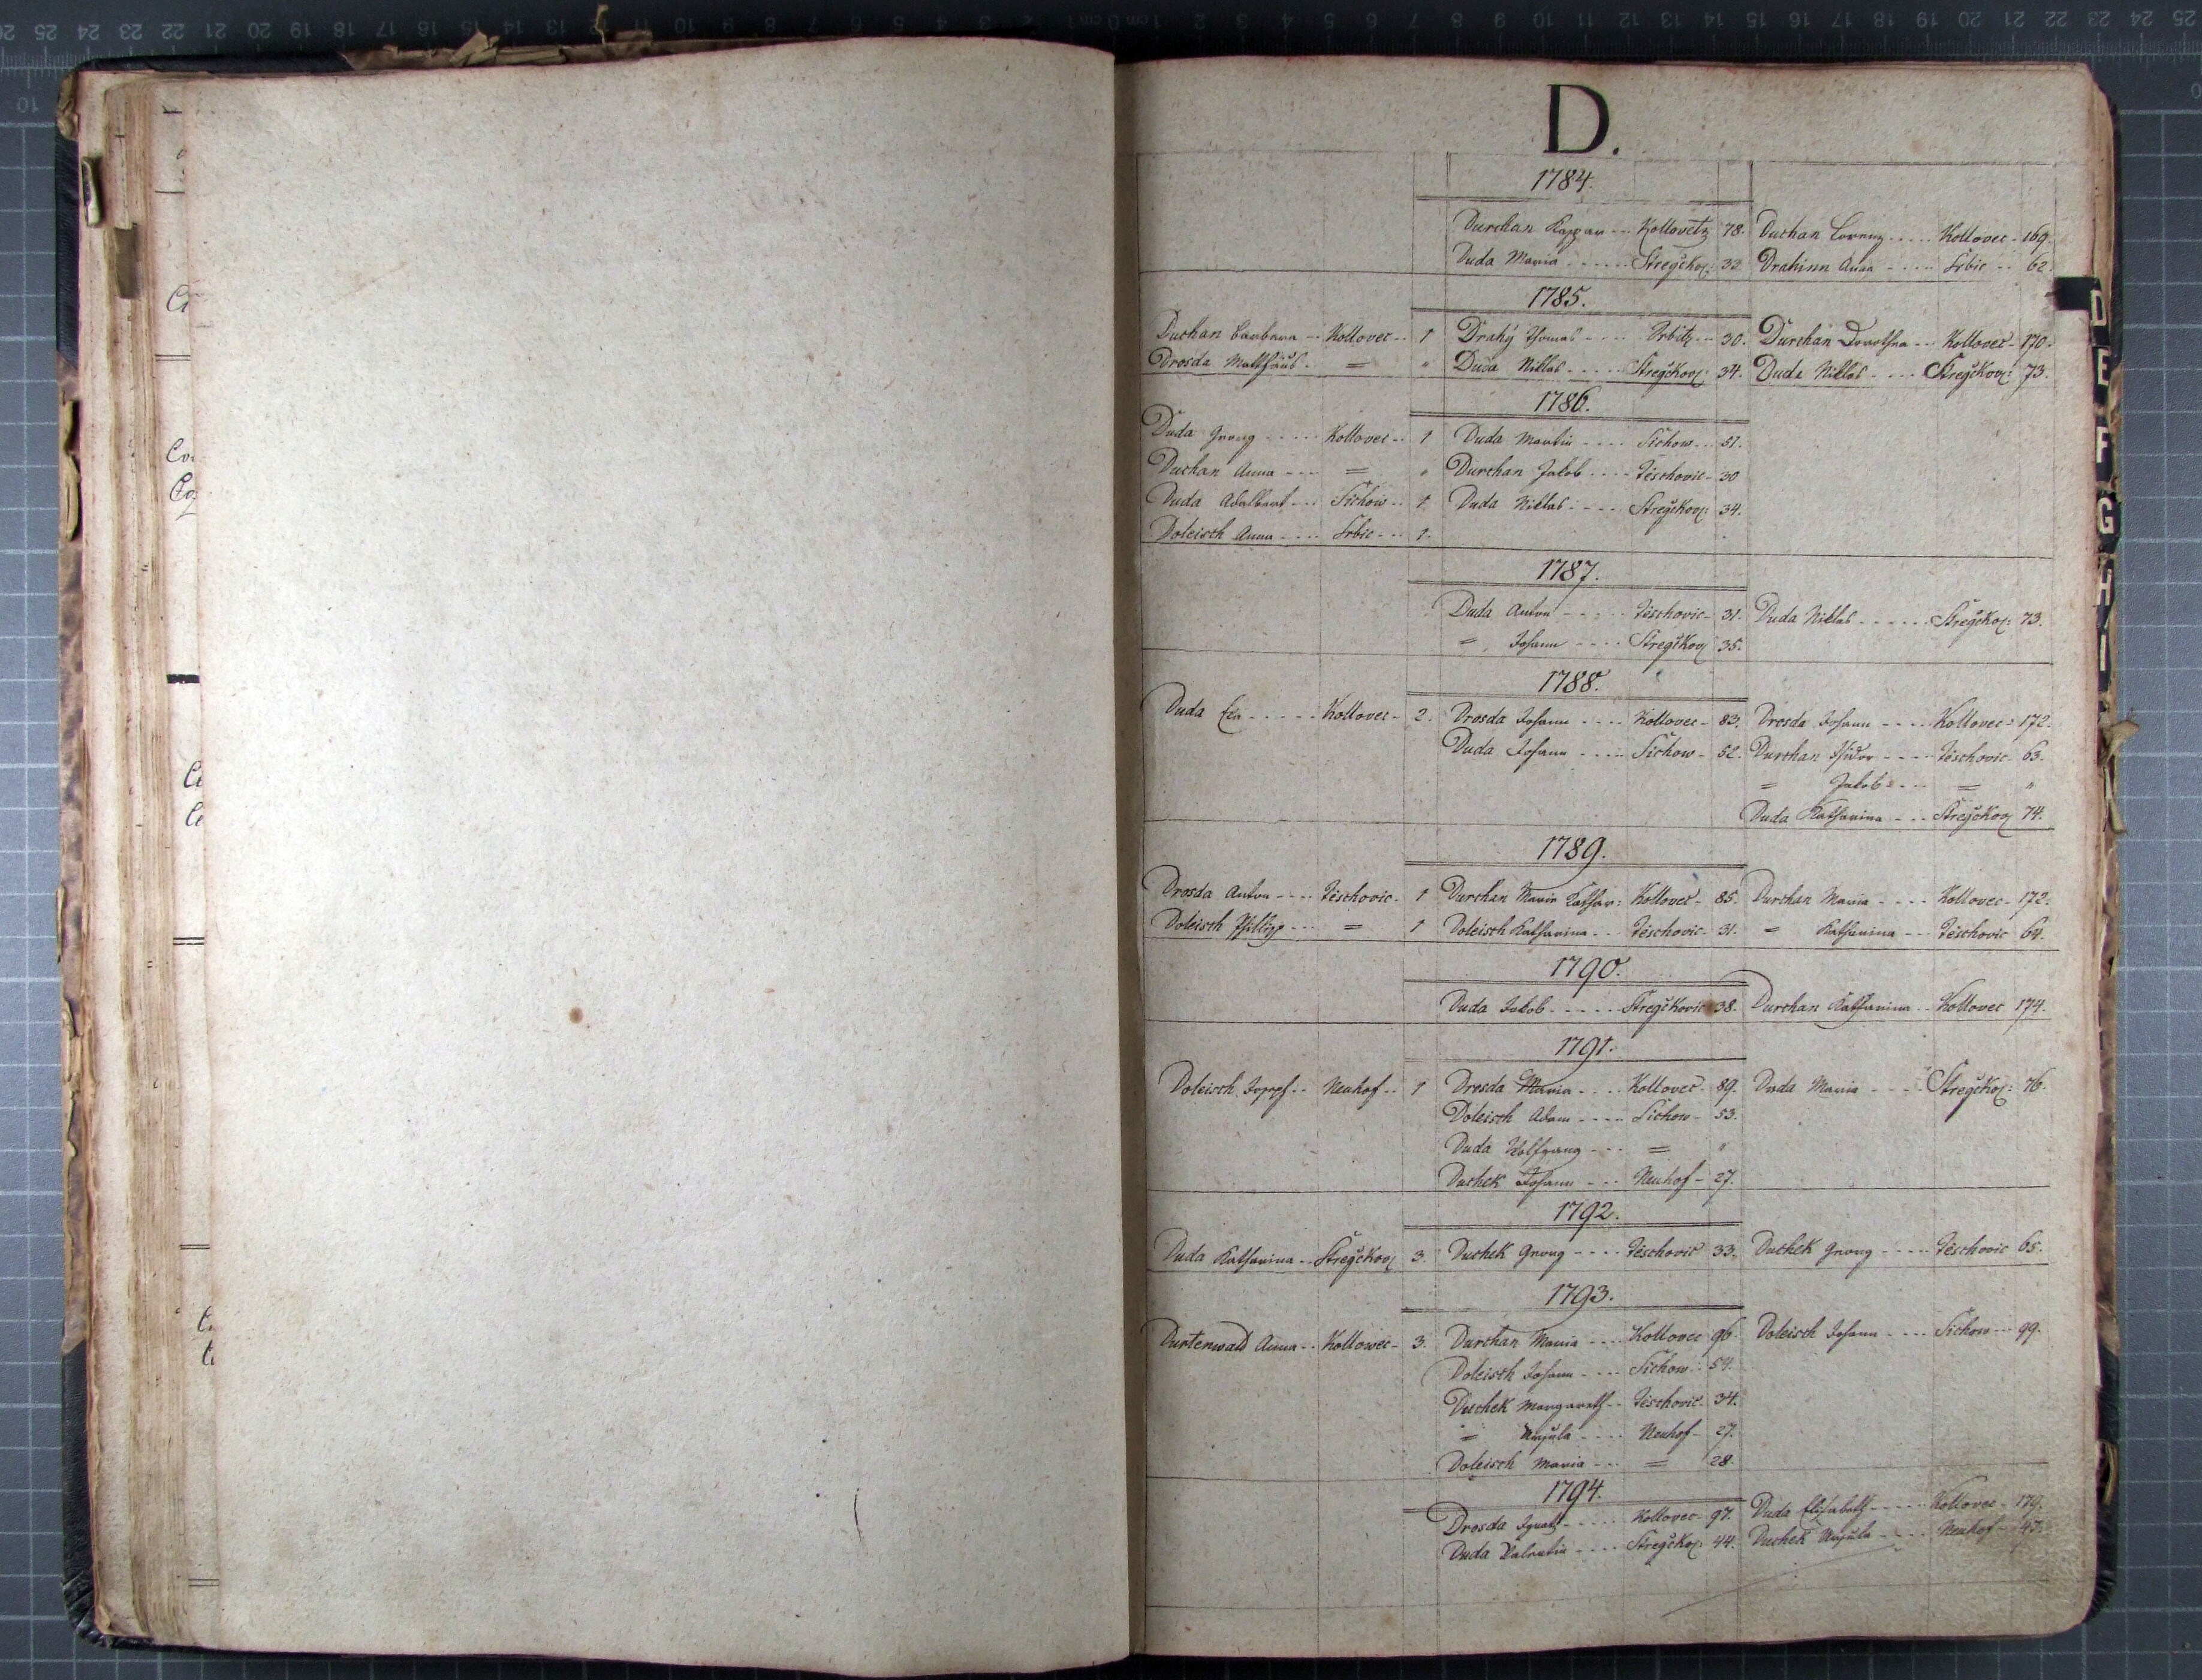 D.
1784.
Durchan Kaspar --- Kollovetz 78. Duchan Lorenz ..... Kollovec - 169.
Duda Maria ...... Stregčkoz: 32. Drahinn Anna ---- Srbic -- 62.
1785.
Duchan Barbara -- Kollovec -- 1 Drahý Thomas ---- Srbitz -- 30. Durchan Dorothea -- Kollovec - 170.
Drosda Matthäus. = " Duda Niklas ----- Stregčkovz: 34. Duda Niklas ---- Stregčkovz: 73.
1786.
Duda Georg ..... Kollovec -- 1 Duda Martin ---- Sichow -- 51.
Duchan Anna --- = " Durchan Jakob ---- Teschovic - 30
Duda Adalbert --- Sichow -- 1. Duda Niklas ---- Stregčkovz: 34.
Doleisch Anna ---- Srbic --- 1.
1787.
Duda Anton ----- Teschovic - 31. Duda Niklas ------ Stregčkoz: 73.
= Johann ---- Stregčkovz 35.
1788.
Duda Eva ----- Kollovec - 2. Drosda Johann .... Kollovec - 83. Drosda Johann ---- Kollovec - 172.
Duda Johann ----- Sichow - 52. Durchan Isidor ---- Teschovic - 63.
= Jakob --- = "
Duda Katharina --- Stregčkovz 74.
1789.
Drosda Anton ---- Teschovic - 1 Durchan Maria Kathar: Kollovec - 85. Durchan Maria ---- Kollovec - 172.
Doleisch Phillipp --- = 1 Doleisch Katharina --- Teschovic - 31. = Katharina --- Teschovic 64.
1790.
Duda Jakob ----- Stregčkovic 38. Durchan Katharina -- Kollovec 174.
1791.
Doleisch Joseph -- Neuhof -- 1 Drosda Maria ---- Kollovec - 89. Duda Maria ---- Stregčkoz: 76.
Doleisch Adam ---- Sichow - 53.
Duda Wolfgang --- = "
Duchek Johann --- Neuhof - 27.
1792.
Duda Katharina -- Stregčkovz 3. Duchek Georg ---- Teschovic 33. Duchek Georg ---- Teschovic 65.
1793.
Durtenwald Anna -- Kollowec - 3. Durchan Maria ---- Kollovec 96. Doleisch Johann ---- Sichow --- 99.
Doleisch Johann ---- Sichow -- 54.
Duchek Margareth -- Teschovic - 34.
= Ursula ---- Neuhof - 27.
Doleisch Maria --- = 28.
1794.
Drosda Ignatz ----- Kollovec - 97. Duda Elisabeth ----- Kollovec - 179.
Duda Valentin ---- Stregčkoz: 44. Duchek Ursula ---- Neuhof - 47.
D
E
F
G
H
I